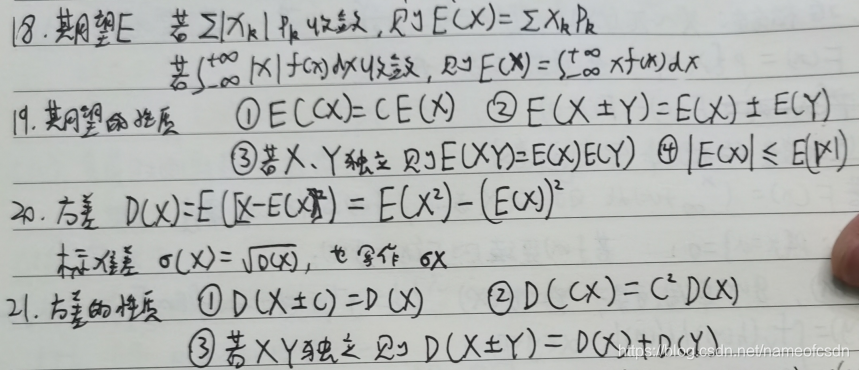 18. 期望E 若 Σ|Xₖ| Pₖ 收敛, 则 E(X)= Σ XₖPₖ
若 ∫₋∞⁺∞ |x| f(x)dx 收敛, 则 E(X)=∫₋∞⁺∞ xf(x)dx
19. 期望的性质 ① E(CX)= CE(X) ② E(X±Y)=E(X)±E(Y)
③ 若X、Y独立 则 E(XY)=E(X)E(Y) ④ |E(X)| ≤ E(|X|)
20. 方差 D(X)=E([X-E(X)]²) = E(X²)-(E(X))²
标准差 σ(X)=√D(X), 也写作 σX
21. 方差的性质 ① D(X±C)=D(X) ② D(CX)=C²D(X)
③ 若XY独立 则 D(X±Y)=D(X)+D(Y)
https://blog.csdn.net/nameofcsdn